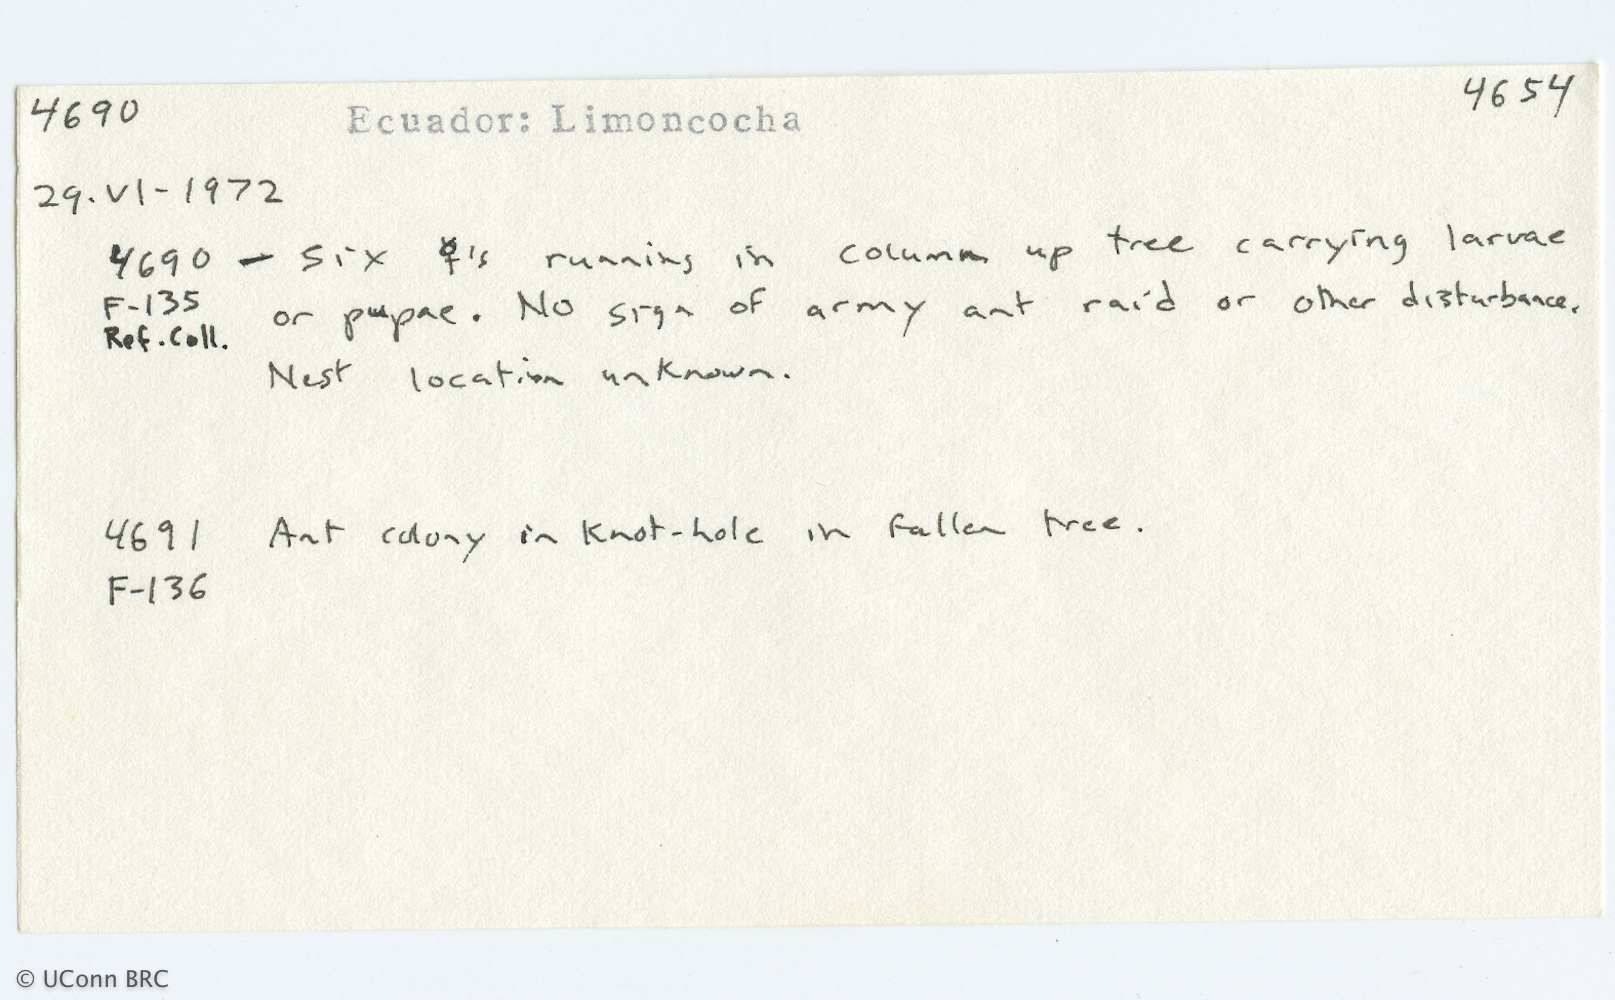 4690 Ecuador: Limoncocha 4654
29.VI-1972
4690 - Six ☿'s running in column up tree carrying larvae
F-135 or pupae. No sign of army ant raid or other disturbance.
Ref. Coll.
Nest location unknown.
4691 Ant colony in knot-hole in fallen tree.
F-136
© UConn BRC